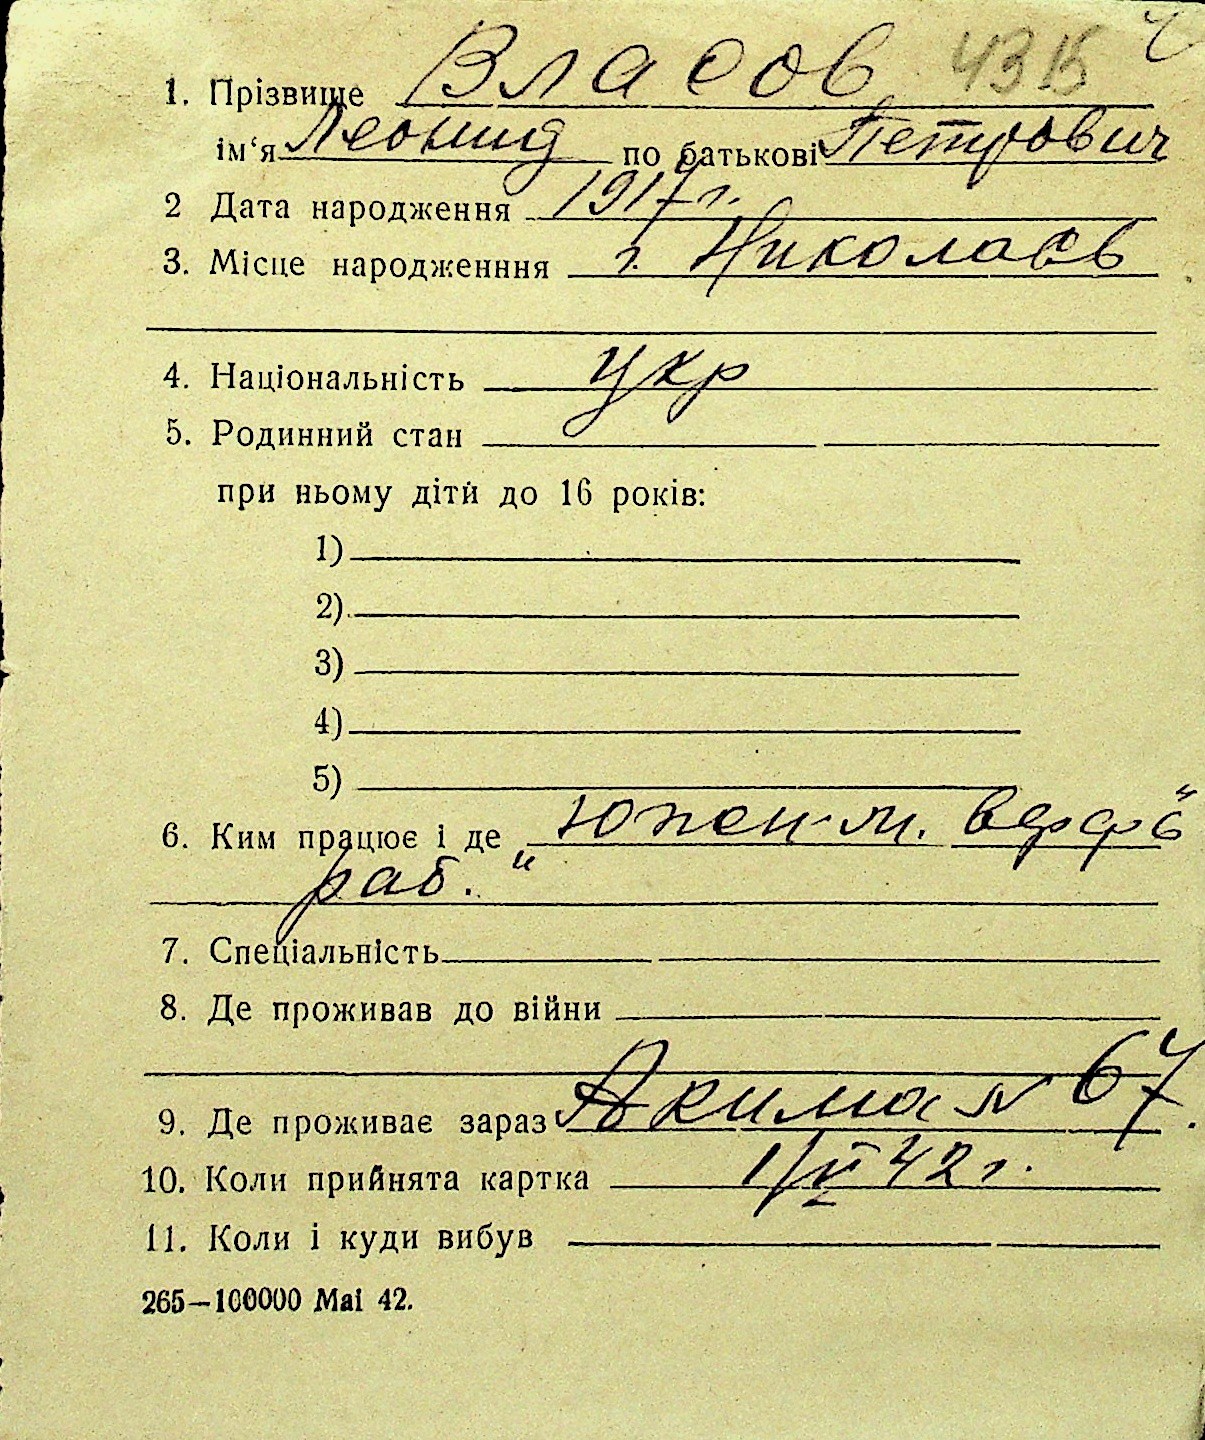 1. Прізвище Власов 4315
ім'я Леонид по батькові Петрович
2 Дата народження 1917 г.
3. Місце народженння г. Николаев
4. Національність укр
5. Родинний стан
при ньому діти до 16 років:
1)
2)
3)
4)
5)
6. Ким працює і де
раб."
7. Спеціальність
8. Де проживав до війни
9. Де проживає зараз Акима № 67.
10. Коли прийнята картка 42 г.
11. Коли і куди вибув
265—100000 Mai 42.